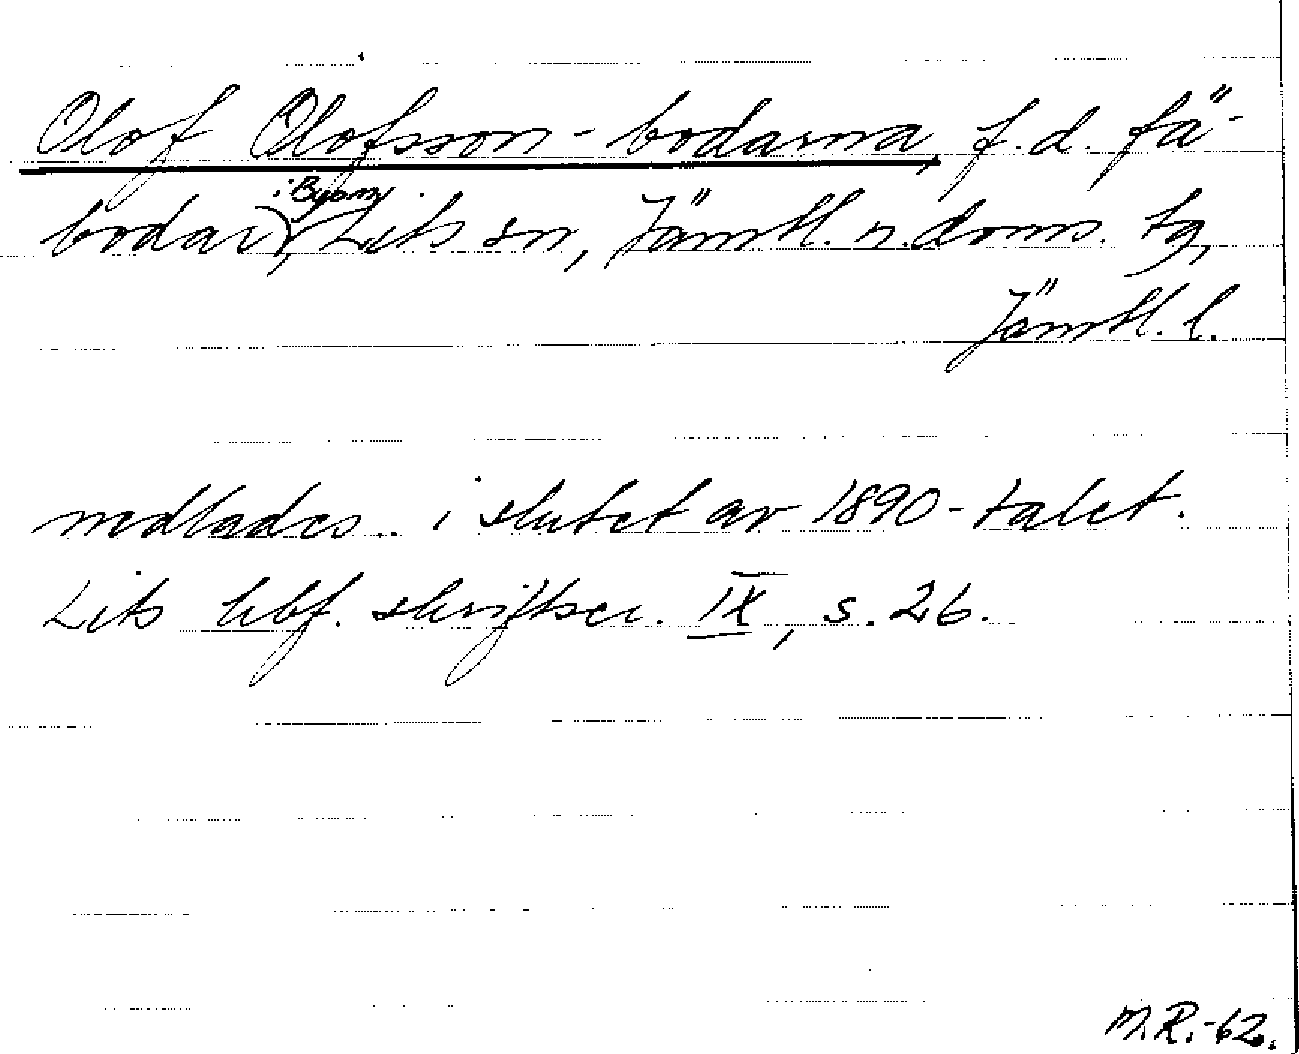 Olof Olofsson-bodarna, f.d. fä-
i Byom
bodar, Lits sn, Jämtl. n. doms. tg,
Jämtl. l.
nedlades.. i slutet av 1890-talet.
Lits hbf. skriftser. IX, s. 26.
M.R.-62.